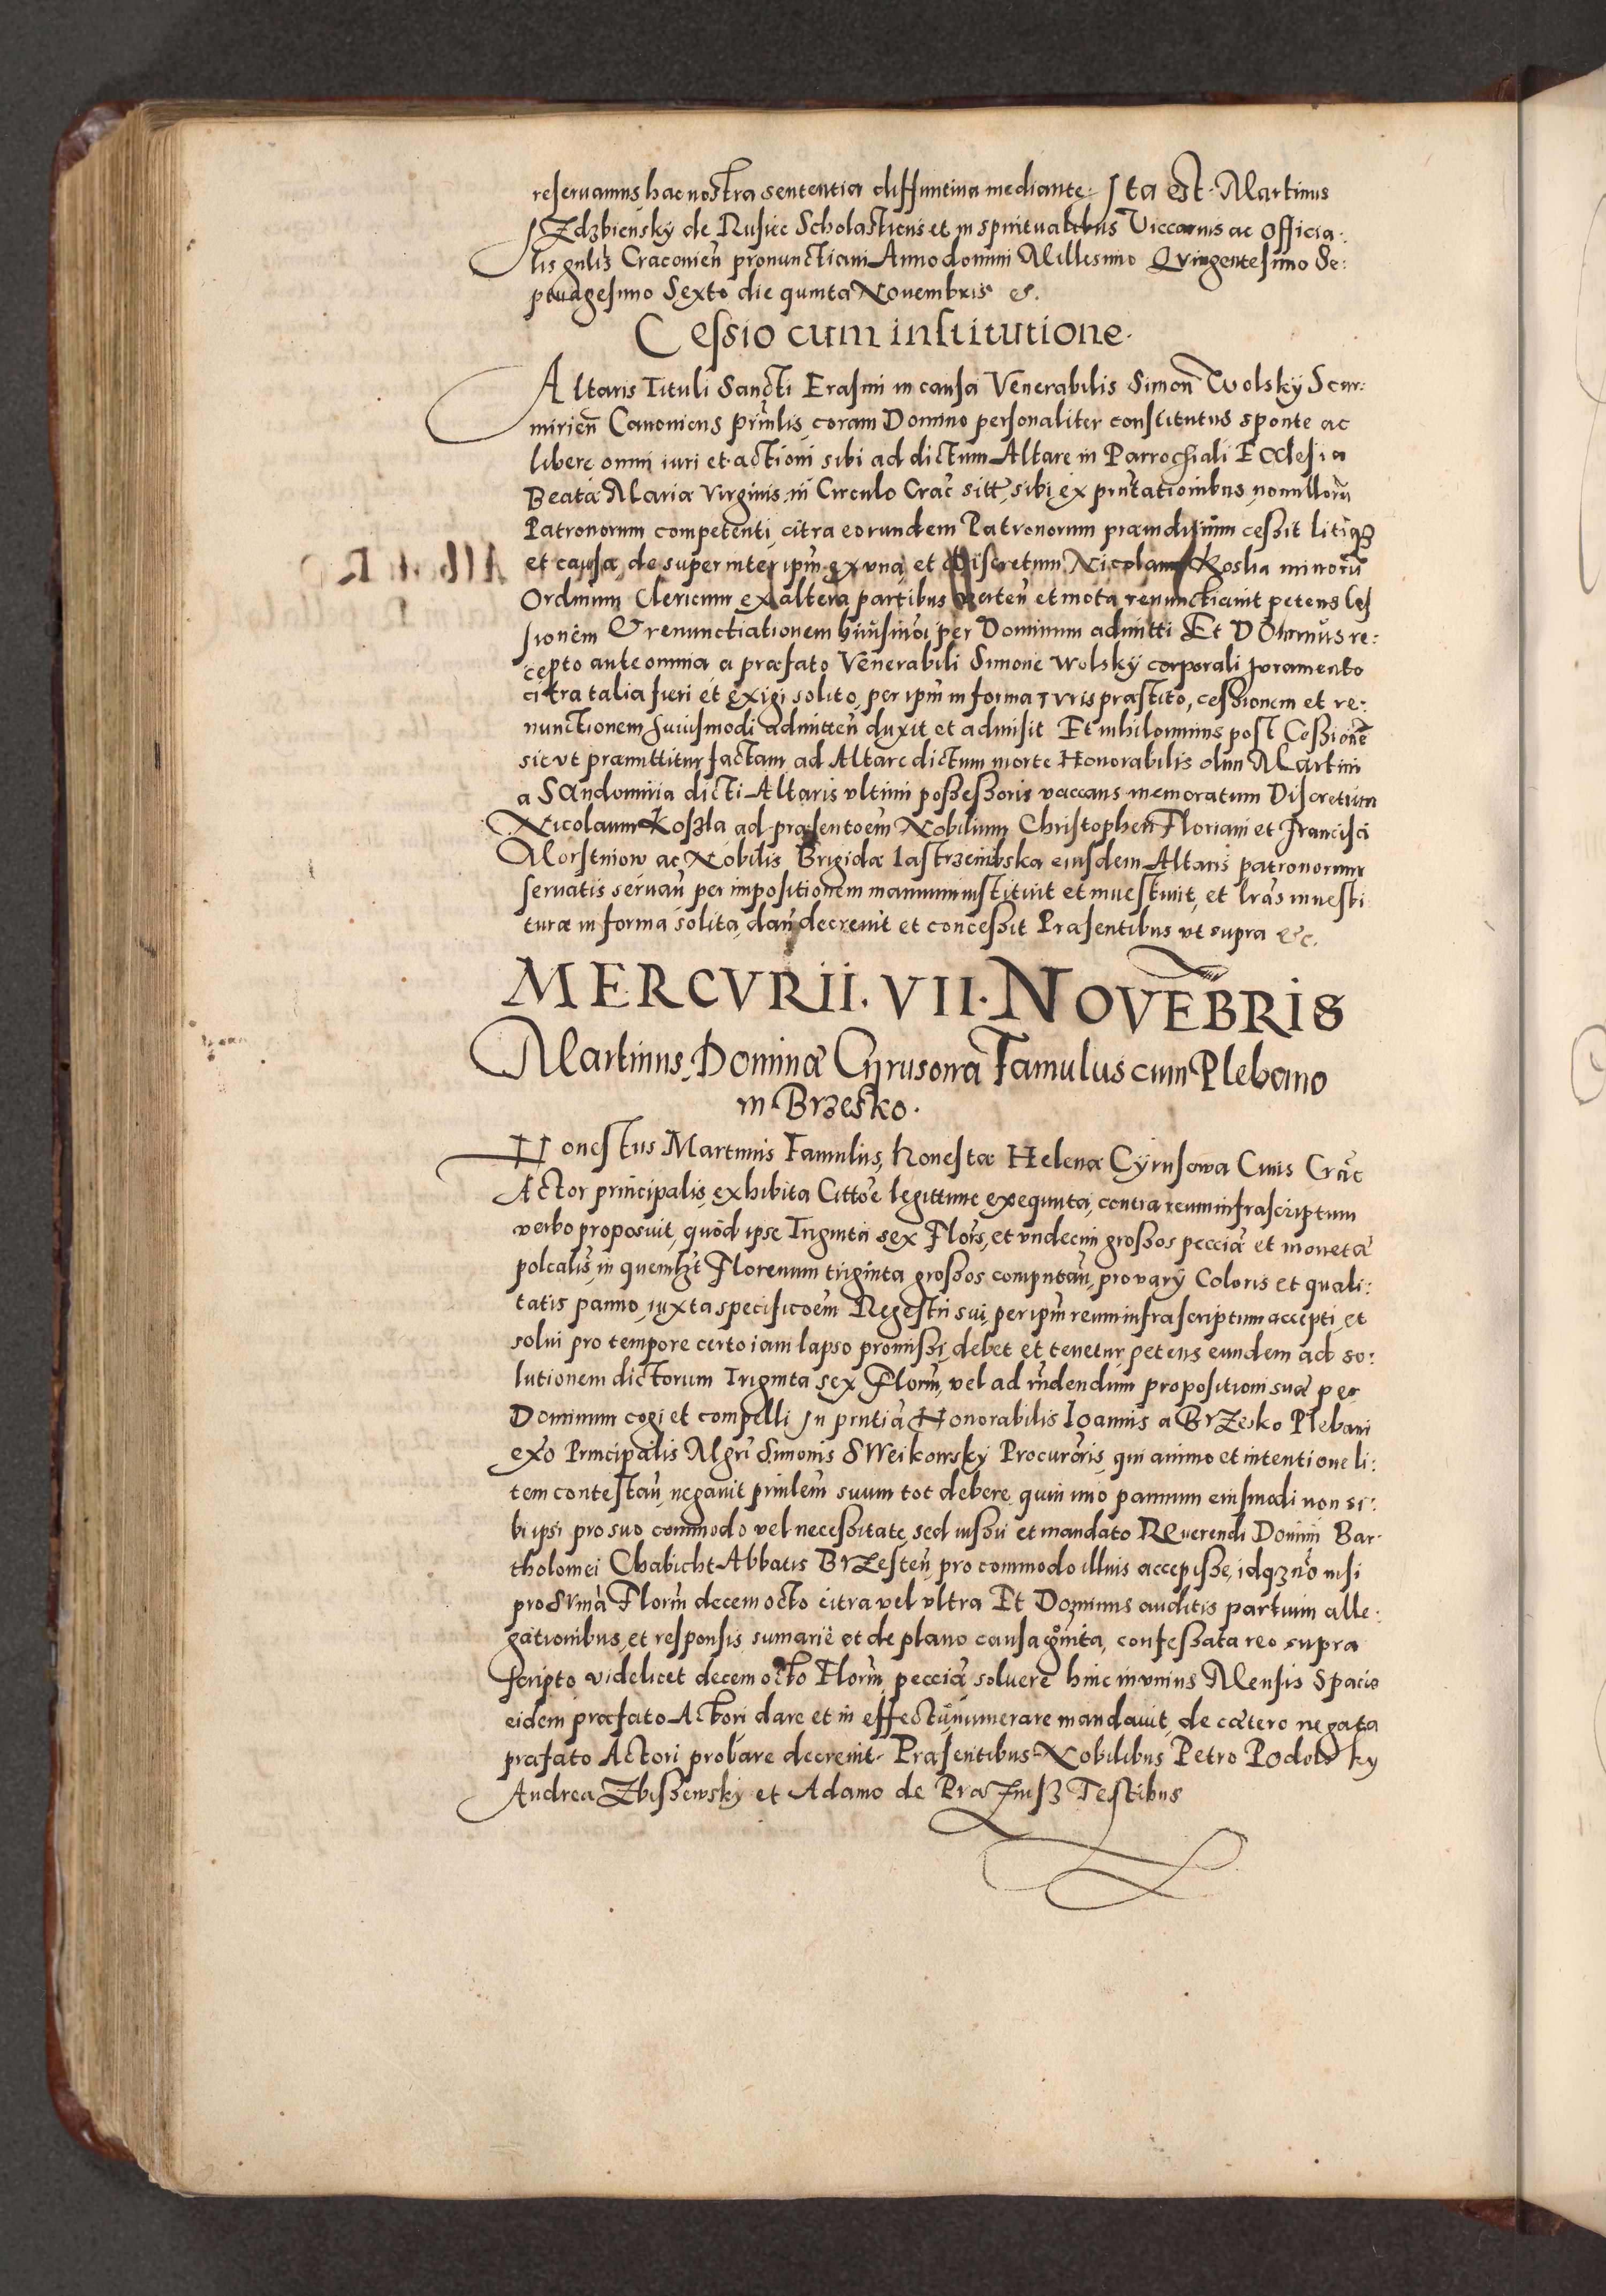 reseruamus hac nostra sententia diffinitiua mediante. Ita est. Martinus
Izdzbiensky de Rusiec Scholasticus et in spiritualibus Viccarius ac Officia:
lis gnlis Cracouien̄ pronunctiaui Anno domini Millesimo Qvingentesimo Se:
ptuagesimo Sexto die quinta Nouembris &.
Cessio cum institutione.
Altaris Tituli Sancti Erasmi in causa Venerabilis Simon Wolskÿ Scar:
mirien̄ Canonicus prin̄lis, coram Domino personaliter constitutus sponte ac
libere omni iuri et actioni sibi ad dictum Altare in Parrochiali Ecclesia
Beatæ Mariæ Virginis in Circulo Crac̄ sitt̄, sibi ex pn̄tationibus nonullorū
Patronorum competenti, citra eorundem Patronorum præiudicium ceßit litiqȝ
et causæ, de super inter ipm̄ ex vna, et Discretum Nicolaum Koslia minorū
Ordinum Clericum ex altera partibus verten̄ et mota renunctiauit petens Ces
sionēm & renunctiationem hūiusmōi per Dominum admitti Et DOminus re:
cepto ante omnia a præfato Venerabili Simone Wolskÿ corporali Juramento
citra talia fieri et exigi solito, per ipm̄ in forma Juris præstito, ceßionem et re:
nunctionem huiusmodi admitten̄ duxit et admisit Et nihilominus post Ceßionē
sic vt præmittitur factam, ad Altare dictum morte Honorabilis olim Martini
a Sandomiria dicti Altaris vltimi poßeßoris vaccans memoratum Discretum
Nicolaum Koßla ad præsentoēm Nobilium Christopheri Floriani et Francisci
Morstniow ac Nobilis Brigidæ Iastrzembska eiusdem Altaris patronorum
seruatis seruan̄ per impositionem manuum instituit et inuestiuit, et lrās inuesti
turæ in forma solita, dan̄ decreuit et conceßit Præsentibus vt supra &c.
MERCVRII. VII. NOVĒBRIS
Martinus, Dominæ Cÿrusowa Famulus cum Plebano
in Brzesko.
Honestus Martinus Famulus, honestæ Helenæ Cÿrusowa Ciuis Crac̄
Actor principalis, exhibita Cittoē legittime exequuta, contra reum infrascriptum
verbo proposuit, quōd ipse Triginta sex Flors̄, et vndecim großos pecciæ et monetæ
polcalis, in quemlzt Florenum triginta großos computan̄, pro varÿ Coloris et quali:
tatis panno, iuxta specificoēm Regestri sui, per ipm̄ reum infrascriptum accepti, et
solui pro tempore certo iam lapso promißi, debet et tenetur, petens eundem ad so:
lutionem dictorum Triginta sex Florn̄, vel ad rn̄dendum propositioni suæ per
Dominum cogi et compelli In pn̄tia Honorabilis Ioannis a BrZesko Plebani
exō Principalis Mgrī Simonis SWeikowsky Procurōris, qui animo et intentione li:
tem contestan̄, negauit prin̄lem suum tot debere, quin imo pannum eiusmodi non si:
bi ipsi pro suo commodo vel neceßitate, sed iußu et mandato REuerendi Domini Bar-
tholomei Chabicht Abbatis BrZesten̄, pro commodo illius accepiße, idqȝ nō nisi
pro Sūma Florn̄ decem octo citra vel vltra Et Dominus auditis partium alle:
gationibus, et responsis sumariē et de plano causa cognita, confeßata reo supra
scripto videlicet decem octo Florn̄, pecciæ soluere hinc in vnius Mensis Spacio
eidem præfato Actori dare et in effectū numerare mandauit, de cætero negata
præfato Actori probare decreuit. Præsentibus Nobilibus Petro Podolsky
Andrea Zbißewsky et Adamo de Præznisz Testibus